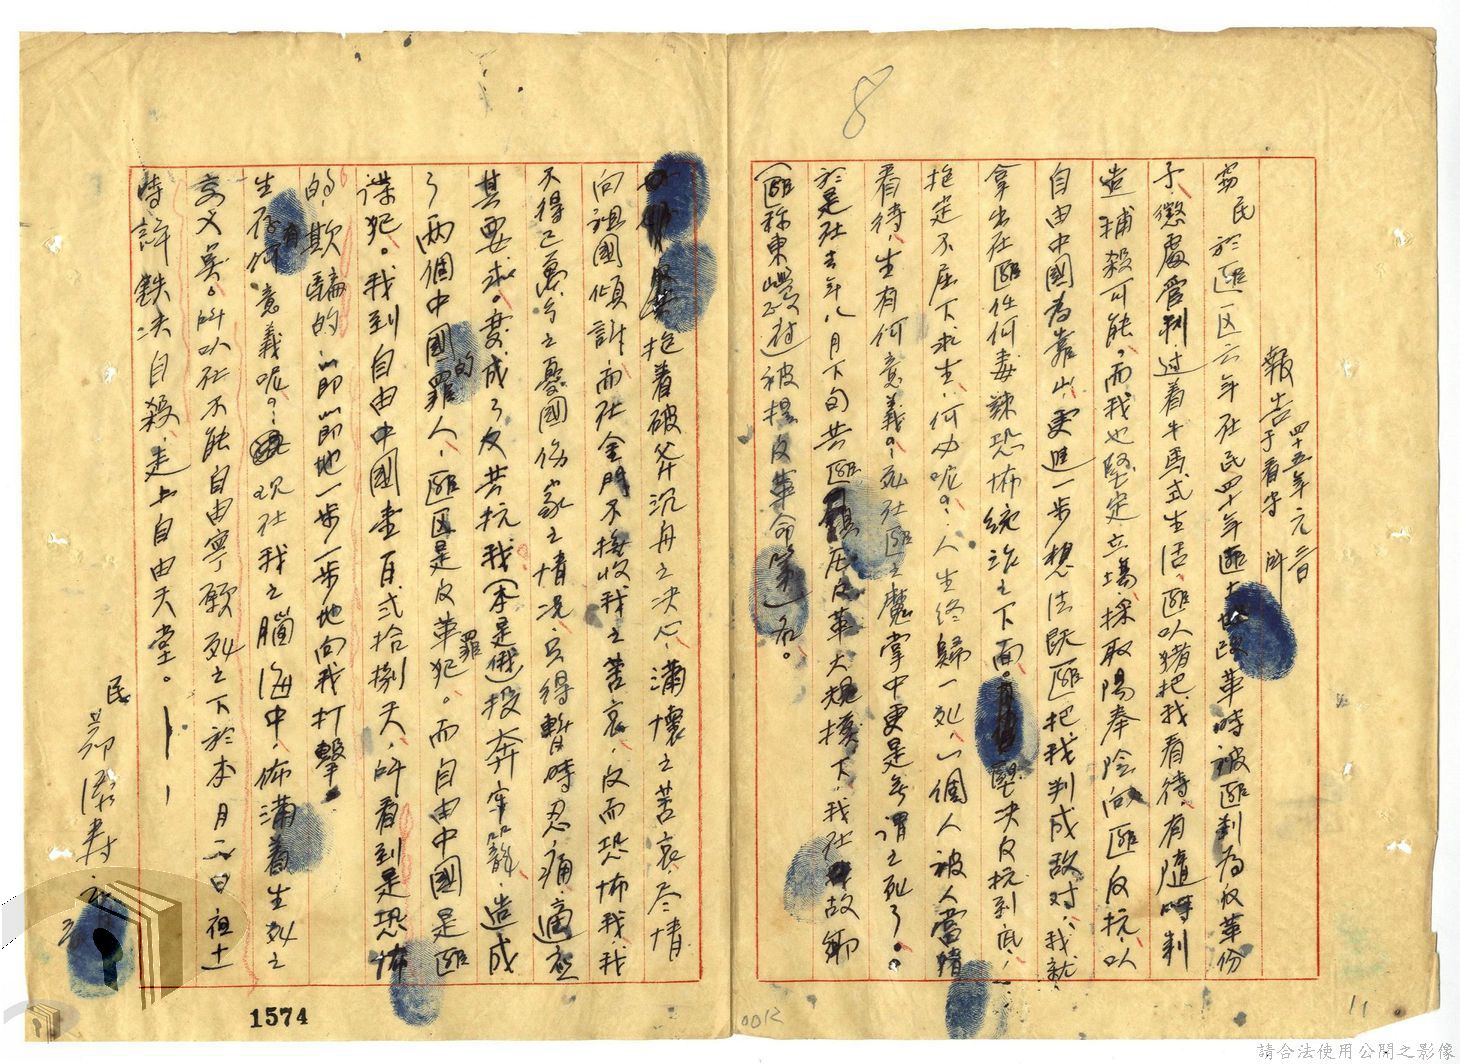 8
報告 四十五年元月
于看守所
窃民於匪区六年在民四十年匪土改革時被匪劃為反革份
子、懲處管制过着牛馬式生活、匪以猪把我看待、有隨時判
造捕殺可能、而我也堅定立場、採取陽奉陰向匪反抗、以
自由中國為靠山、更進一步想法既匪把我判成敌对、我就
拿出在匪任何毒辣恐怖統治之下面。堅决反抗到底、
抱定不屈下求生、何如呢?人生终歸一死、一個人被人當猪
看待、生有何意義?死在匪之魔掌中更是無謂之死了。
於是在去年八月下旬共匪鎮压反革大規模下、我在故鄉
(匪称東嶴政村)被提反革命第一名。
抱着破斧沉舟之决心、滿懷之苦哀、尽情
向祖國傾訴、而在金門不接收我之苦哀、反而恐怖我、我
不得已萬分之憂國伤家之情况只得暫時忍痛、適应
其要求。変成了反共抗我(本是俄)投奔牢籠、造成
了两個中國的罪人、匪区是反革犯罪。而自由中國是匪
諜犯。我到自由中國壹百弍拾捌天、所看到是恐怖
的、欺騙的、一節一節地一步一步地向我打擊。
生存有何意義呢?現在我之腦海中、佈滿着生死之
交叉吴。所以在不能自由寧願死之下於本月二日祖十一
時許鉄决自殺、走上自由天堂。
民
1574
00R
11
請合法使用公開之影像